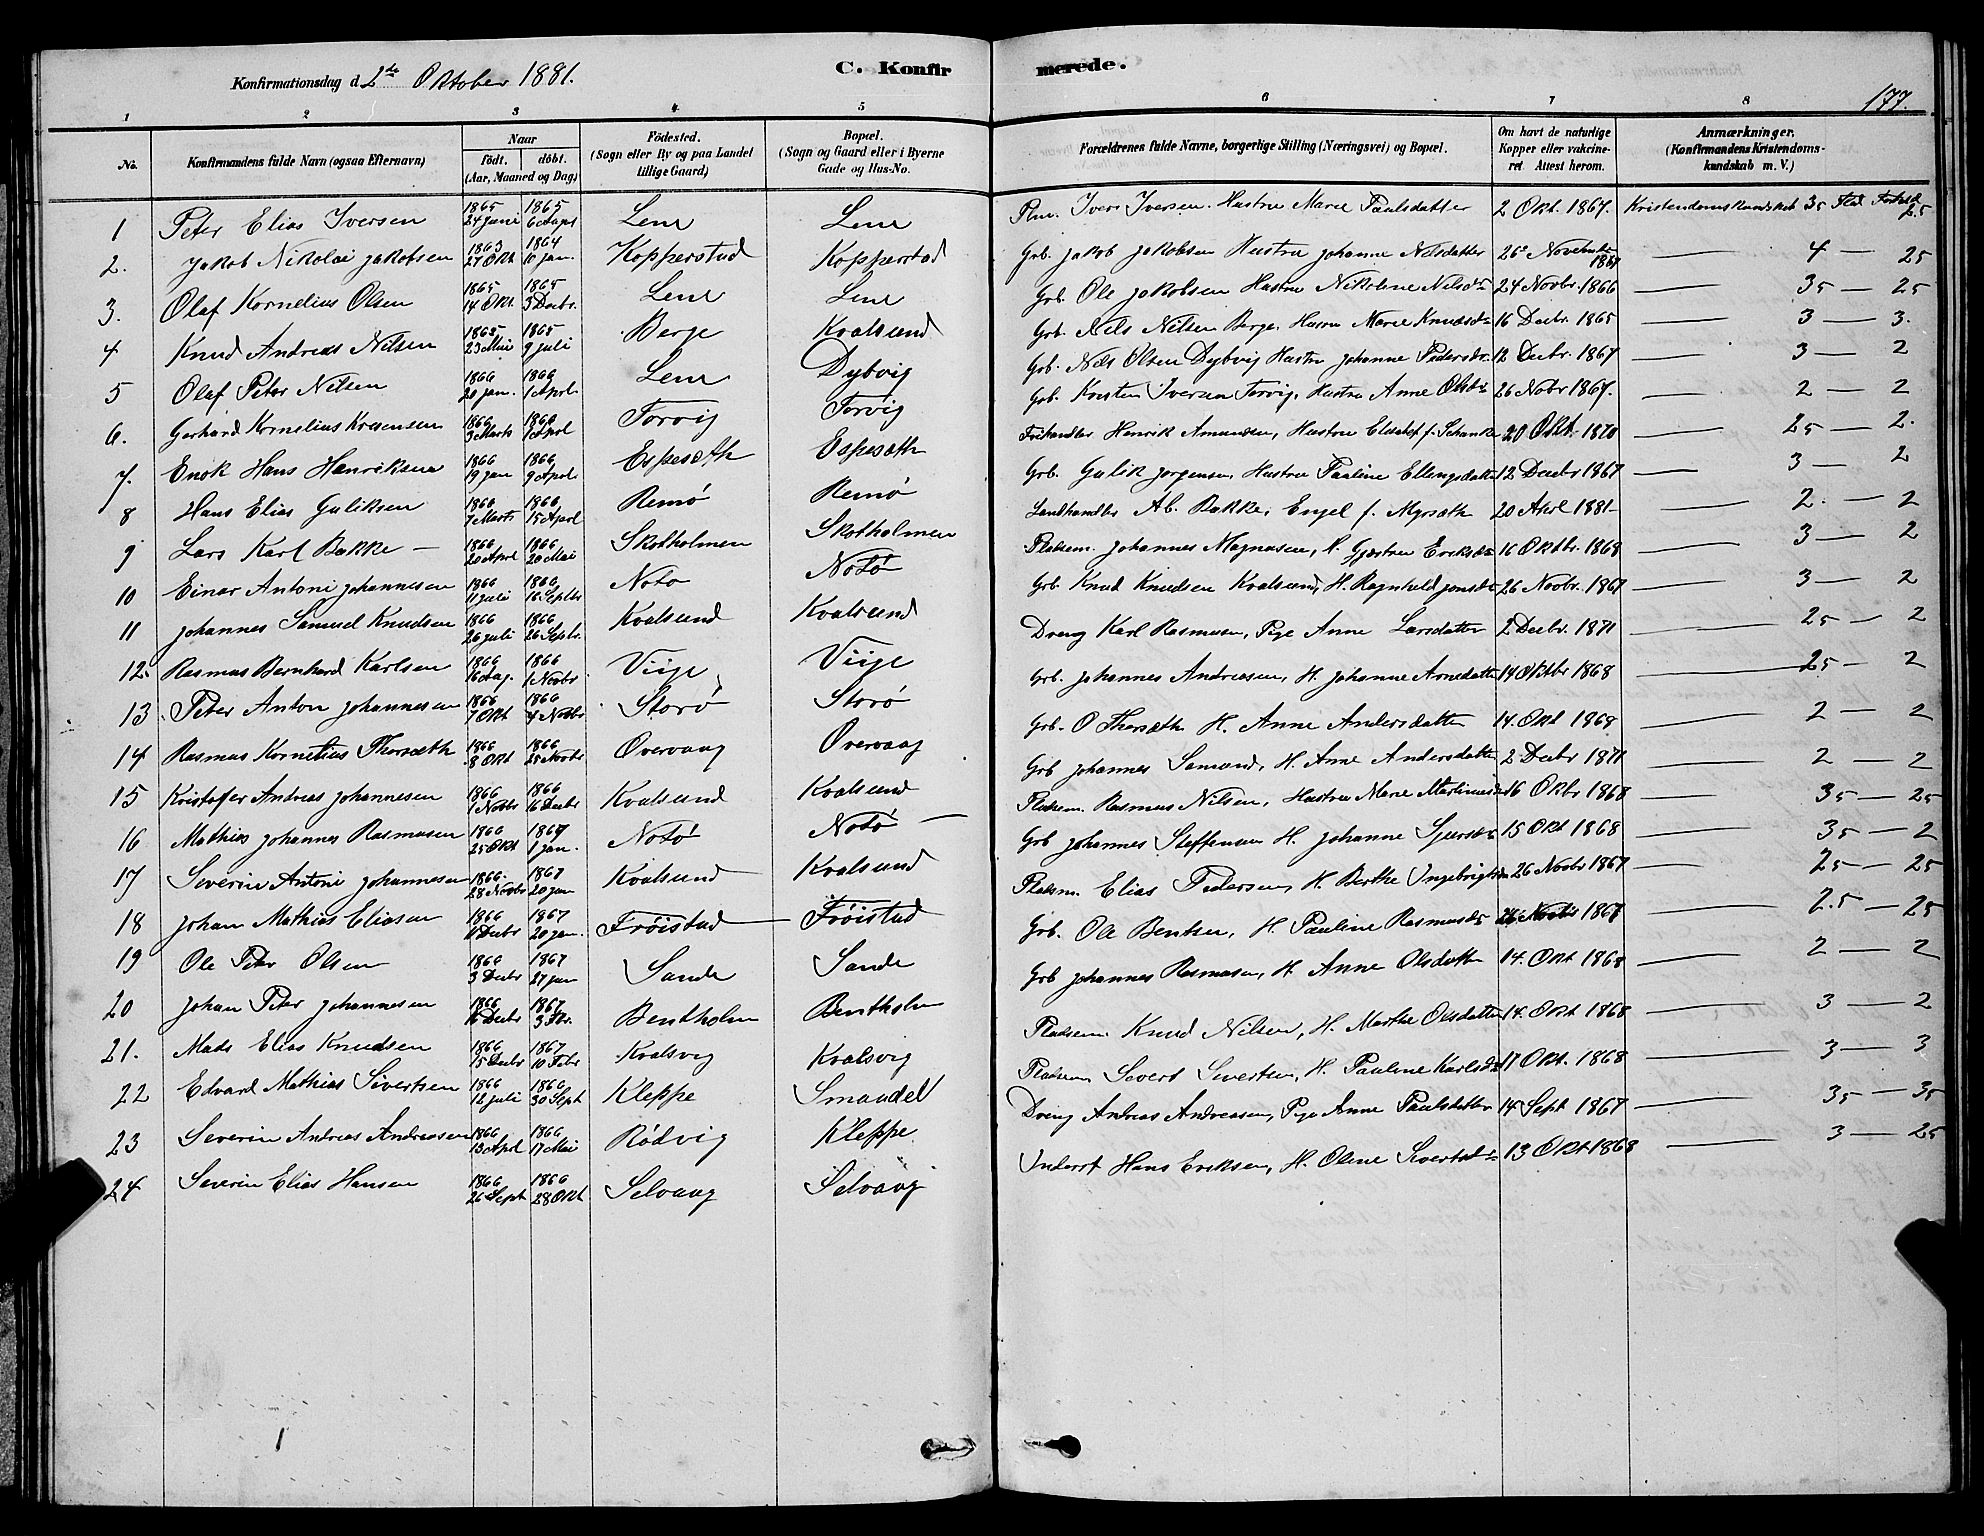 Konfirmationsdag d. 2de Oktober 1881.
C. Konfirmerede.
177.
1 2 3 4 5 6 7 8
No. Konfirmandens fulde Navn (ogsaa Efternavn) Naar født. døbt. (Aar, Maaned og Dag) Fødested. (Sogn eller By og paa Landet tillige Gaard) Bopæl. (Sogn og Gaard eller i Byerne Gade og Hus-No. Forældrenes fulde Navne, borgerlige Stilling (Næringsvei) og Bopæl. Om havt de naturlige Kopper eller vakcineret Attest herom. Anmærkninger. (Konfirmandens Kristendomskundskab m. V.)
1 Peter Elias Iversen 1865 24 Juni 1865 6 Aug Lene Lene Plm. Ivers Iversen Hustru Marie Paulsdatter 2 Okt. 1867. Kristendomskundskab 35 Flid 25
2. Jakob Nikolai Jakobsen 1863 27 Okt 1864 10 Jan. Kopperstad Kopperstad Grb. Jakob Jakobsen Hustru Johanne Nilsdatter 26 November 1867 — 4 — 25
3. Olaf Kornelius Olsen 1865 14 Okt 1865 3 Decbr. Lene Lene Grb. Ole Jakobsen Hustru Nikoline Nilsdr 24 Novbr. 1866 — 35 — 25
4 Knud Andreas Nilsen 1865 23 Mai 1865 9 Juli Berge Kvalsund Grb. Nils Nilsen Berge. Hustru Marie Knudsdr 16 Decbr. 1865 — 3 — 3.
5 Olaf Peter Nilsen 1866 20 Jan. 1866 1 April Lene Dybvig Grb. Nils Olsen Dybvig Hustru Johanne Pedersdr. 12 Decbr. 1867 — 3 — 2
6. Gerhard Kornelius Kristensen 1866 3 Marts 1866 1 April Torvig Torvig Grb. Kristen Iversen Torvig, Hustru Anne Olsdr 26 Nobr 1867. — 2 — 2
7. Enok Hans Henriksen 1866 19 Jan 1866 9 April Espesæth Espesæth Frihandler Henrik Amundsen, Hustru Elisabet f. Schanke 20 Okt. 1870 — 25 — 2.
8 Hans Elias Guliksen 1866 7 Marts 1866 15 April Remø Remø Grb. Gulik Jørgensen, Hustru Pauline Ellingsdatter 12 Decbr 1867 — 3 — 2
9 Lars Karl Bakke — 1866 20 April 1866 20 Mai Skotholmen Skotholmen Landhandler Ab. Bakke, Engel f. Myrsæth 20 April 1881 — 2. — 2
10 Einar Antoni Johannesen 1866 11 Juli 1866 16 Septbr Notø Notø Pladsm. Johannes Magnusen, H. Gjertrue Eriksdr 16 Oktbr. 1868 — 3 — 2
11 Johannes Samuel Knudsen 1866 26 Juli 1866 26 Septbr. Kvalsund Kvalsund Grb Knud Knudsen Kvalsund, H. Ragnhild Jonsdr 26 Novbr. 1867 — 3 — 2
12. Rasmus Bernhard Karlsen 1866 16 Aug. 1866 1 Novbr Viige Viige Dreng Karl Rasmusen, Pige Anne Larsdatter 2 Decbr. 1871 — 25 — 2
13 Peter Anton Johannesen 1866 7 Okt 1866 4 Novbr Storø Storø Grb. Johannes Andreasen, H. Johanne Arnedatter 14 Oktbr 1868 — 25 — 2
14 Rasmus Kornelius Thorsæth 1866 8 Okt 1866 25 Novbr Overvaag Overvaag Grb. O Thorsæth H. Anne Andersdatter 14. Okt 1868 — 2 — 2
15 Kristofer Andreas Johannesen 1866 1 Novbr 1866 16 Decbr Kvalsund Kvalsund Grb Johannes Samund, H. Anne Andersdatter 2 Decbr 1871 — 2 — 2
16 Mathias Johannes Rasmusen 1866 25 Okt 1867 1 Jan. Notø Notø — Pladsm. Rasmus Nilsen, Hustru Marie Martinusdr 16 Okbr 1868 — 35 — 25
17 Severin Antoni Johannesen 1866. 28 Novbr 1867 20 Jan Kvalsund Kvalsund Grb Johannes Steffensen H. Johanne Sjursdr 15 Okt 1868 — 35 — 2
18 Johan Mathias Eliasen 1866 11 Decbr 1867 20 Jan. Frøistad Frøistad Pladsm. Elias Pedersen, H. Berthe Ingebrigtsdr 26 Novbr 1867 — 25 — 25
19 Ole Peter Olsen 1866 3 Decbr 1867 27 Jan Sande Sande Grb. Ole Bentsen, H. Pauline Rasmusdr 26 Novbr 1867 — 2.5 — 25
20 Johan Peter Johannesen 1866 16 Decbr 1867 3 Fbr. Bentholm Bentholm Grb Johannes Rasmusen, H. Anne Olsdatter 14. Okt 1868 — 2 — 2
21. Mads Elias Knudsen 1866 15 Decbr 1867 10 Febr Kvalsvig Kvalsvig Pladsem. Knud Nilsen, H. Marthe Olsdatter 14. Okt 1868 — 3 — 2
22 Edvard Mathias Sivertsen 1866 12 Juli 1866 30 Sept Kleppe Smaadel Pladsem Sivert Sivertsen, H. Pauline Karlsdr 17 Okt. 1868 — 3 — 3
23 Severin Andreas Andreasen 1866 13 April 1866 17 Mai Rødvig Kleppe Dreng Andreas Andreasen, Pige Anne Paulsdatter 14 Sept 1867 — 35 — 35
24 Severin Elias Hansen 1866 26 Sept 1866 28 Okt Selvaag Selvaag Inderst Hans Eriksen, H. Oline Sivertsdr 13 Okt 1868 — 3 — 25